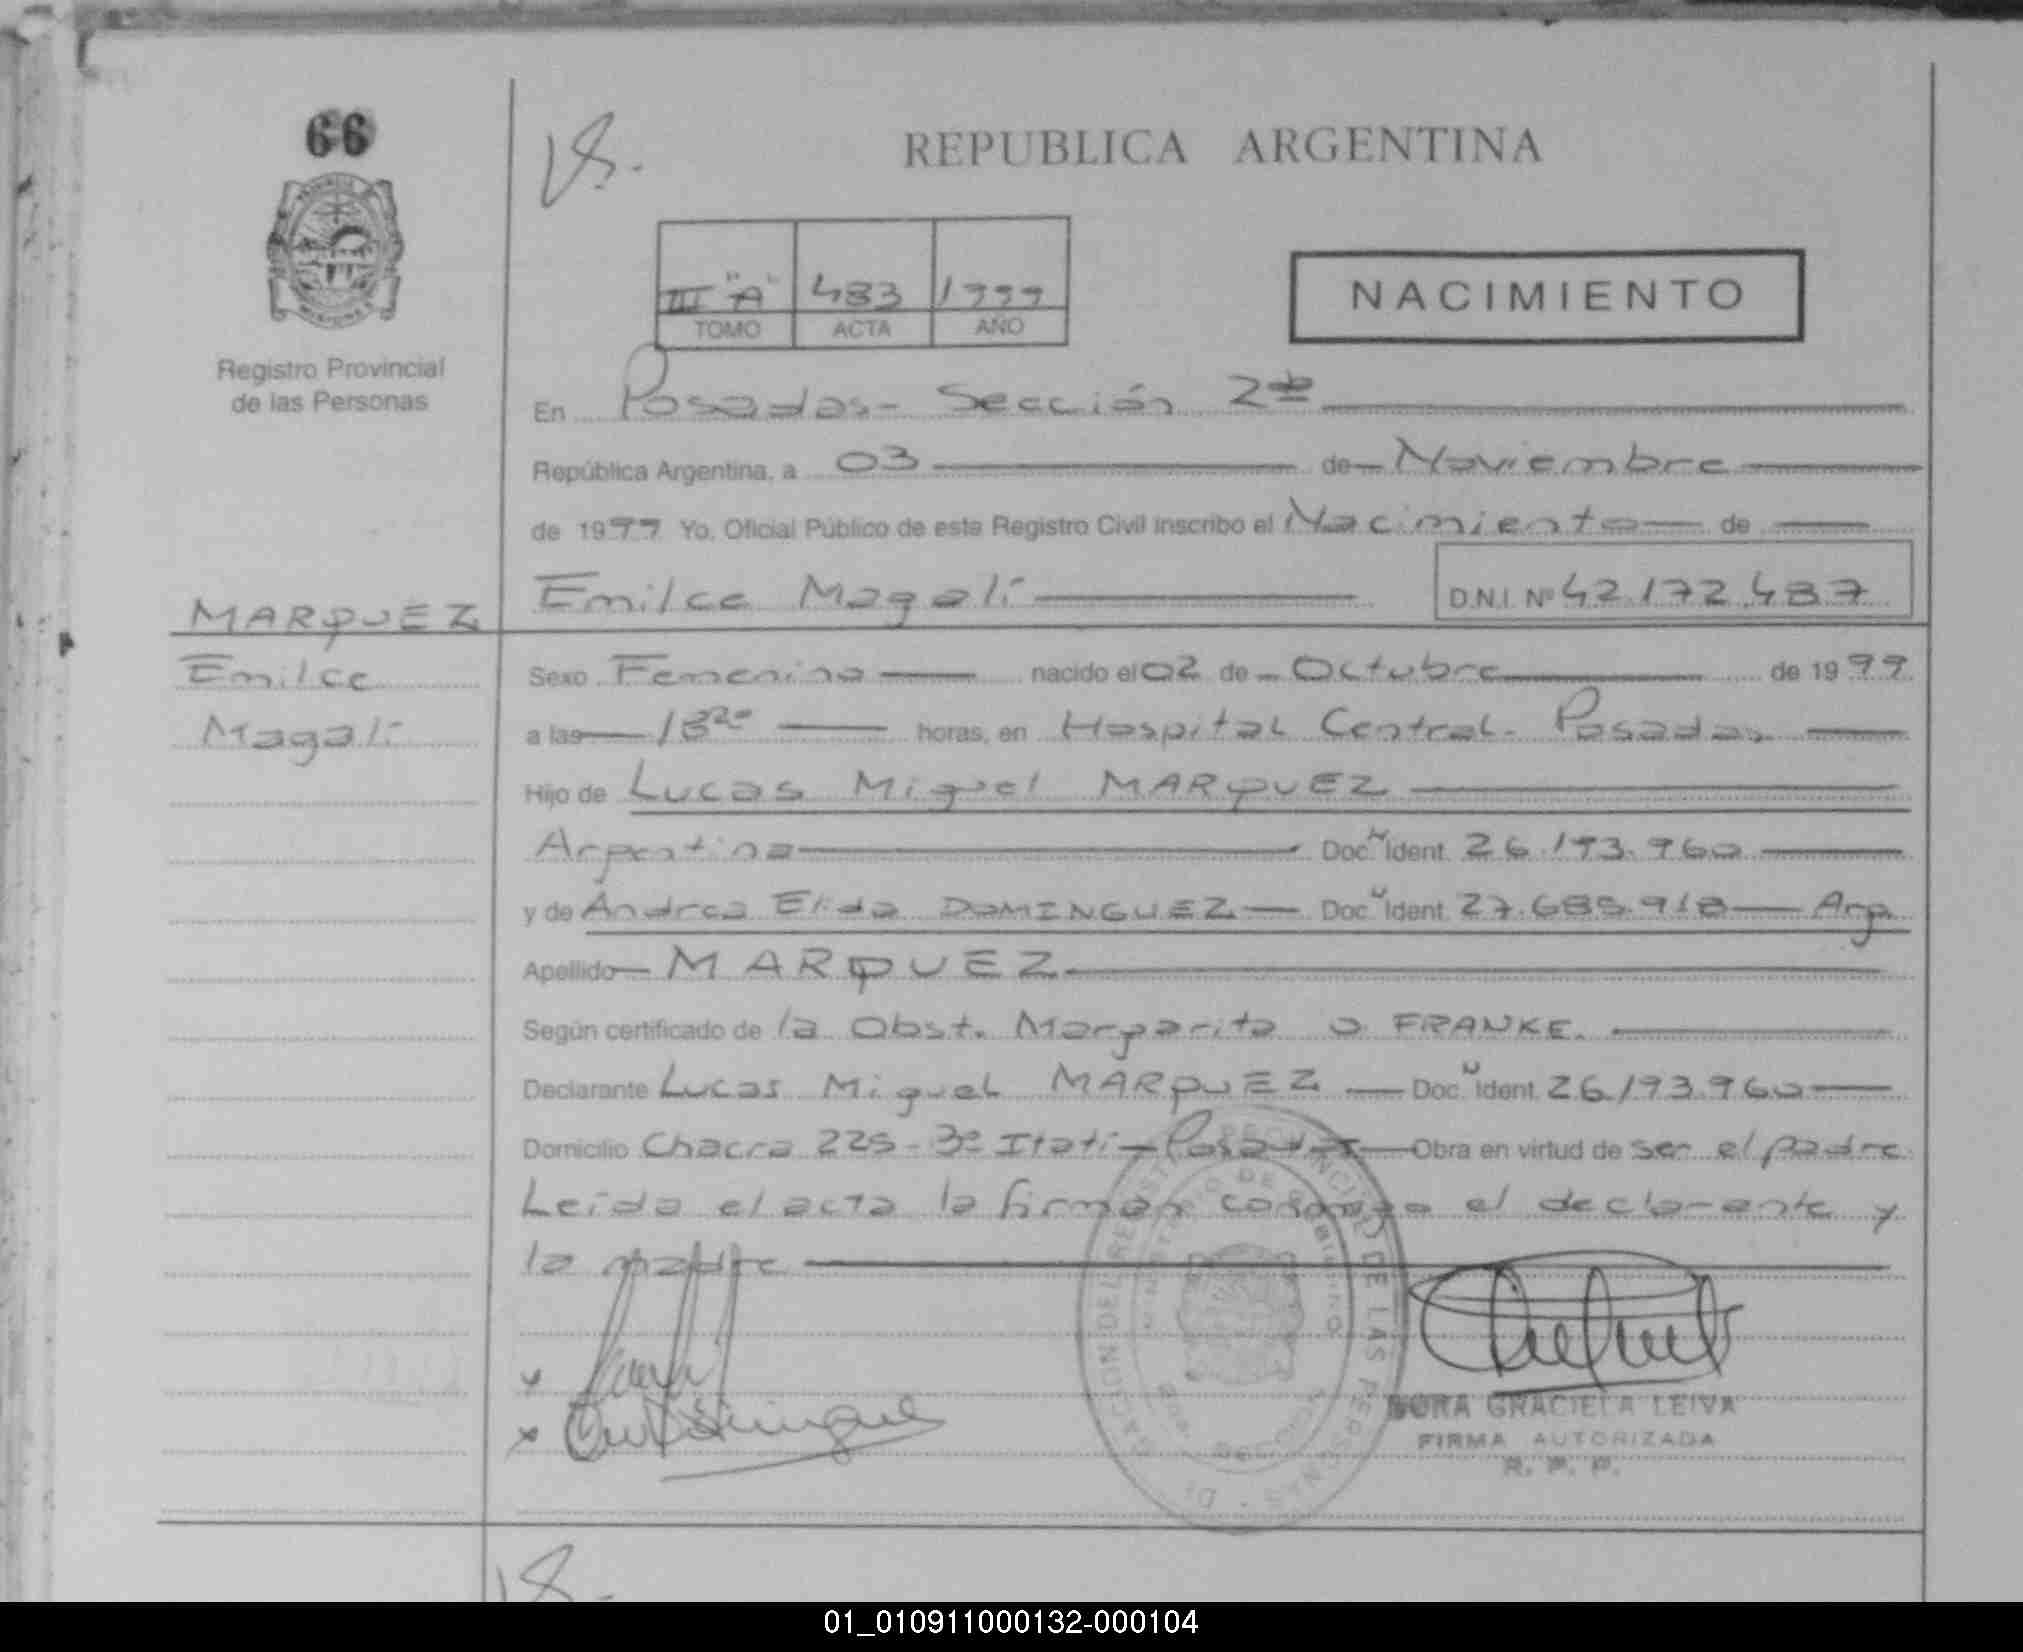 66
REPUBLICA ARGENTINA
III "A" 483 1999
TOMO ACTA AÑO
NACIMIENTO
Registro Provincial
de las Personas
En Posadas - Sección 2da
República Argentina, a 03 de Noviembre
de 1999 Yo, Oficial Público de este Registro Civil inscribo el Nacimiento de
MARQUEZ Emilce Magalí D.N.I. Nº 42.172.487
Emilce
Magalí
Sexo Femenino nacido el 02 de Octubre de 1999
a las horas, en Hospital Central - Posadas
Hijo de Lucas Miguel MARQUEZ
Argentina Doc. Ident. 26.193.960
y de Andrea Elida DOMINGUEZ Doc. Ident. 27.685.918 Arg.
Apellido MARQUEZ
Según certificado de la Obst. Margarita O FRANKE.
Declarante Lucas Miguel MARQUEZ Doc. Ident. 26.193.960
Domicilio Chacra 225 - Bº Itatí - Posadas Obra en virtud de ser el padre
Leída el acta la firman conmigo el declarante y
la madre
NORA GRACIELA LEIVA
FIRMA AUTORIZADA
R. P. P.
01_010911000132-000104